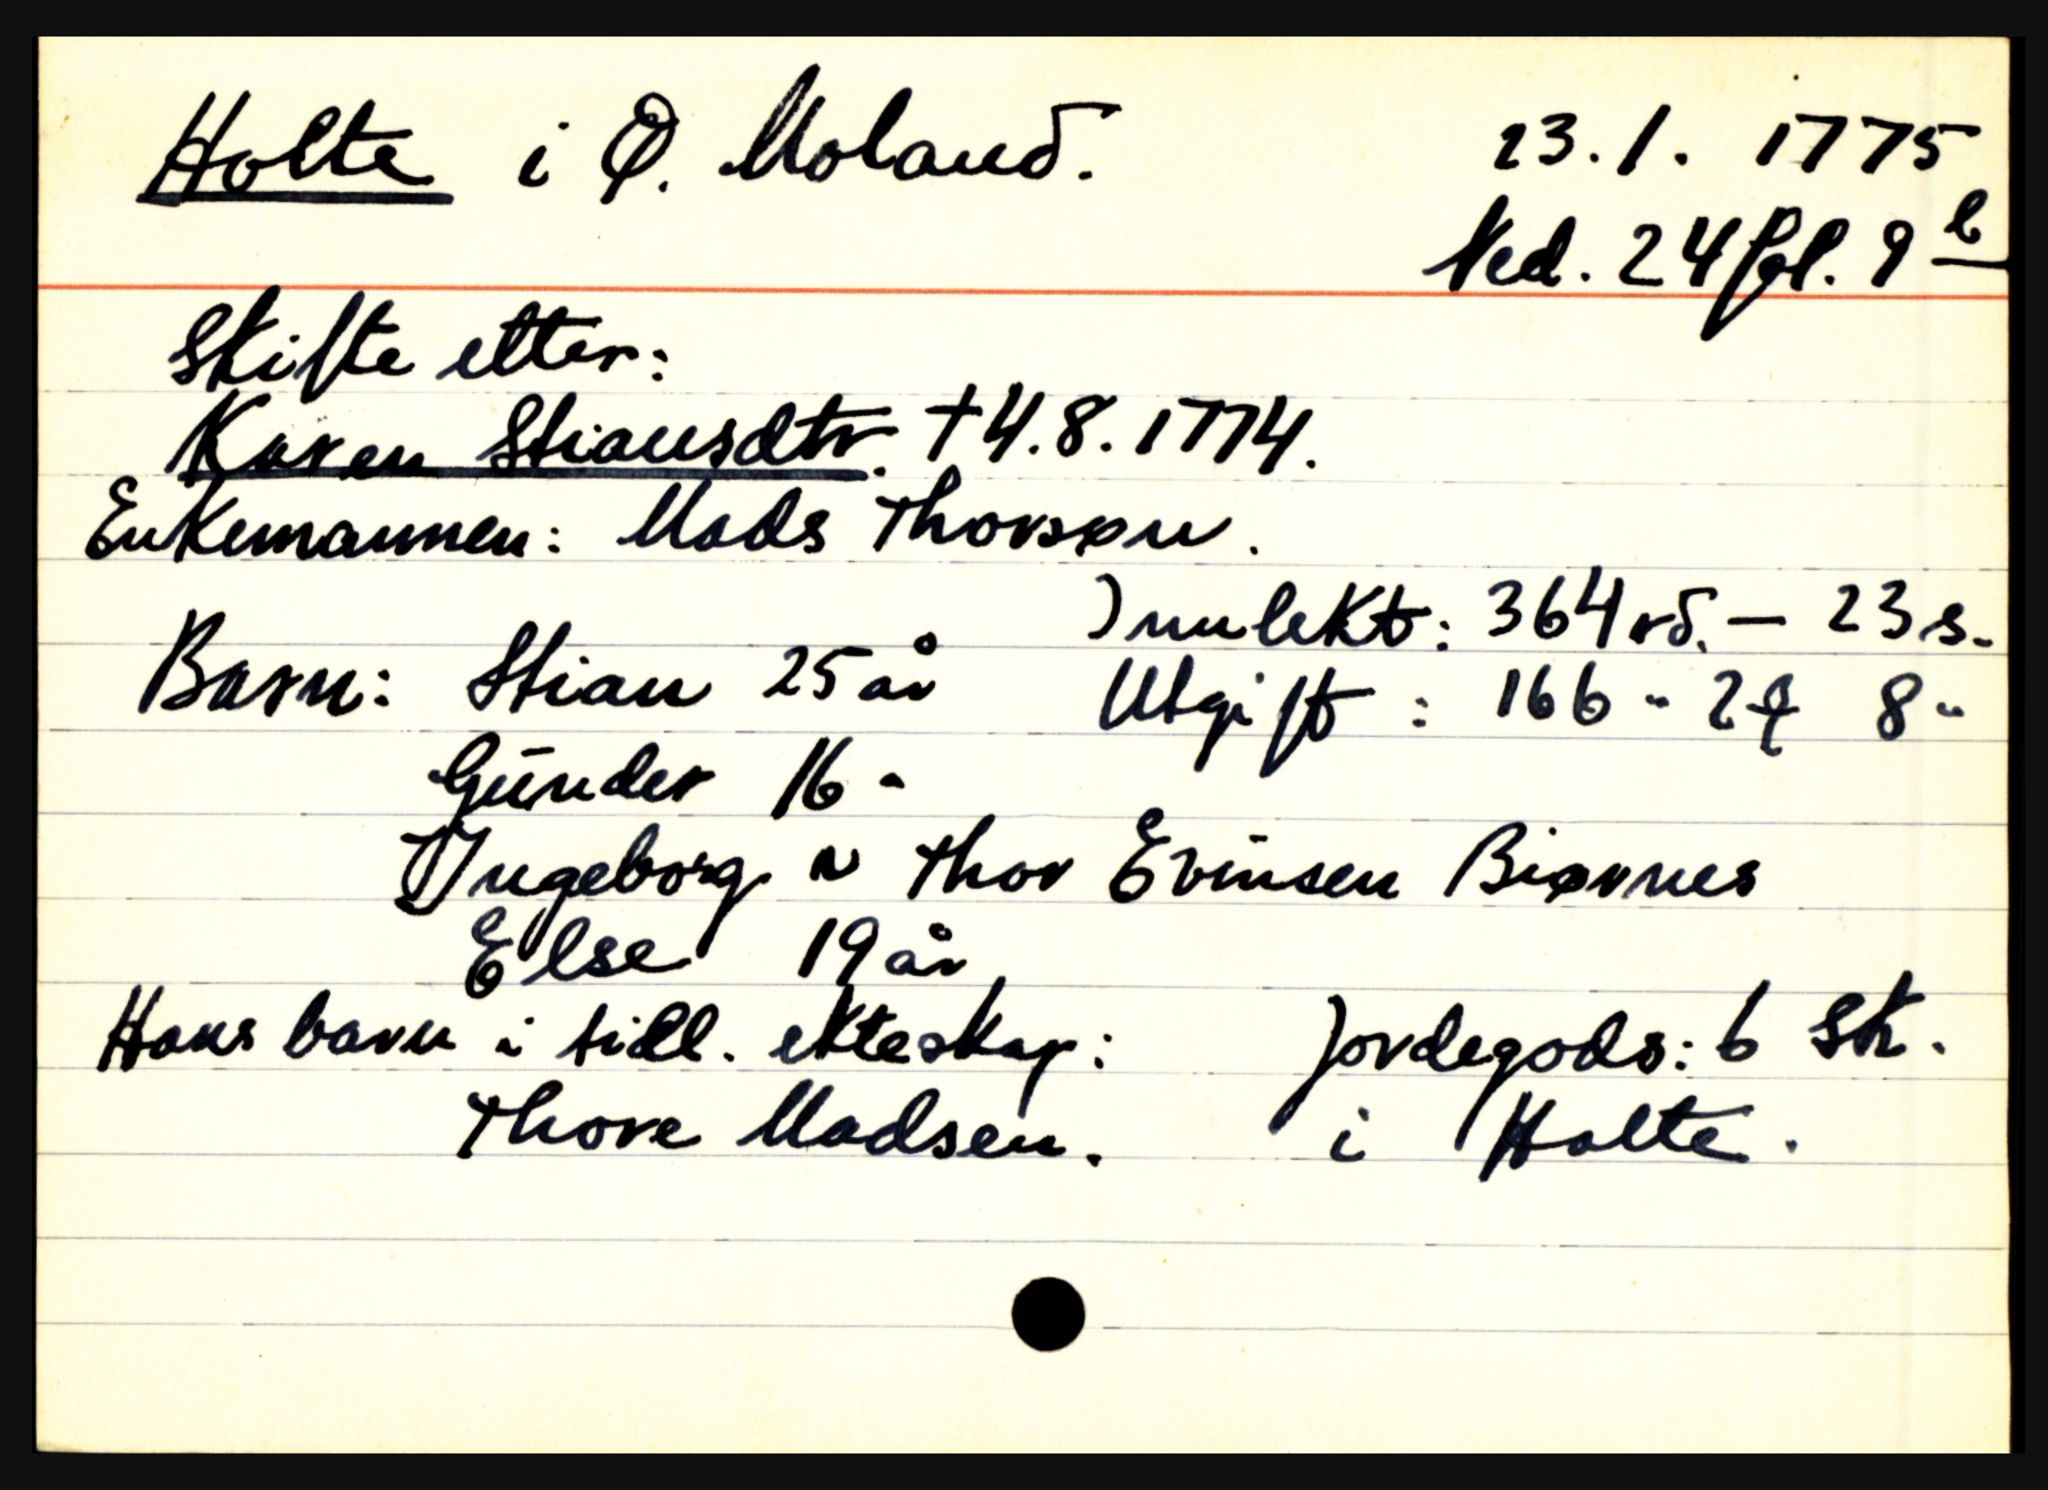 Holte i Ø. Moland. 23.1. 1775
Ned. 24 fol. 9 b
Skifte etter:
Karen Stiansdtr. † 4.8.1774.
Enkemannen: Mads Thorsøn.
Innlekt: 364 rd. – 23 s.
Barn: Stian 25 år Utgift : 166 " 2 8 "
Gunder 16 "
Ingeborg ~ Thor Evinsen Biørnes
Else 19 år
Hans barn i tidl. ekteskap: Jordegods: 6 Sk.
Thore Madsen. i Holte.